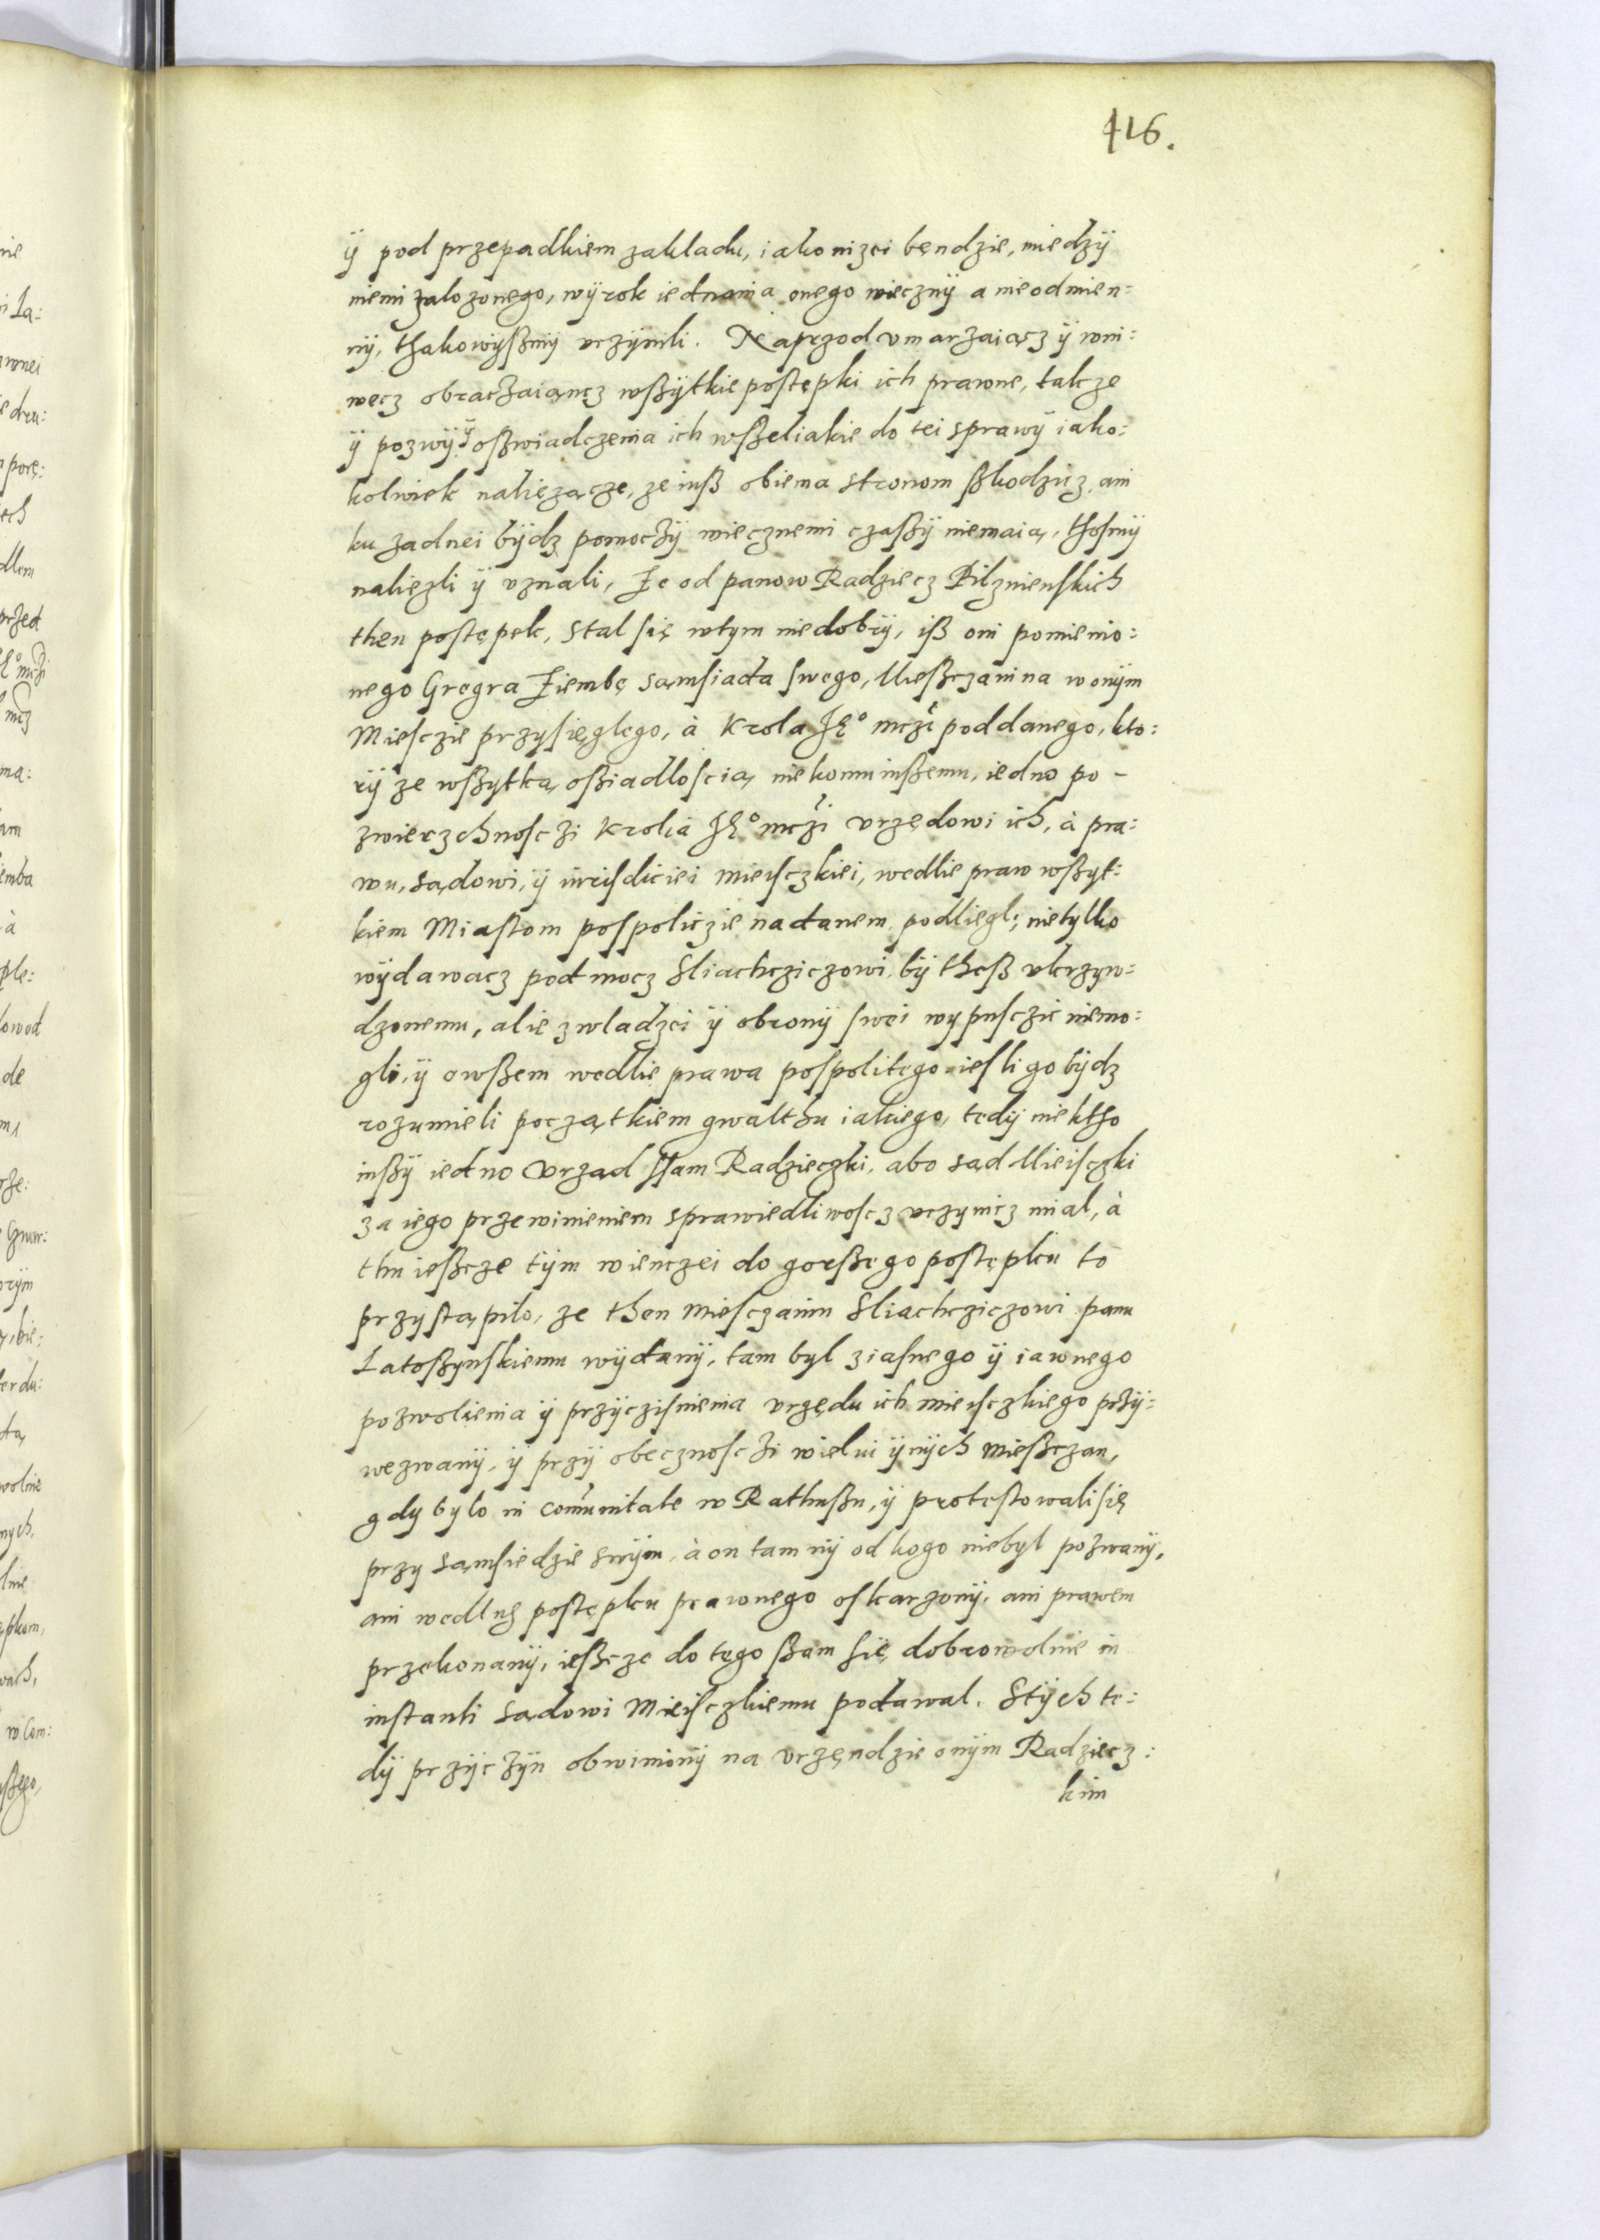 416.
ÿ pod przepadkiem zakladu, iako nizei bęndzie, miedzÿ
niemi zalozonego, wÿrok iednania onego wiecznÿ a nieodmien:
nÿ, thakowÿßmÿ vczÿnili. Naprzod vmarzaiącz ÿ wni:
wecz obraczaiąncz wßÿtkie postępki ich prawne, takze
ÿ pozwÿ, ÿ oßwiadczenia ich wßeliakie do tei sprawÿ iako:
kolwiek należącze, ze inß obiema stronom ßkodzicz, ani
ku zadnei bÿdz pomoczÿ wiecznemi czaßÿ niemaią, thosmÿ
naliezli ÿ vznali, Ze od panow Radziecz Pilznienskich
then postępek, stal się wtym niedobrÿ, iß oni pomienio:
nego Gregra Ziembę sąmsiada swego, Mießczanina w onÿm
Miesczie przysięglego, à Krola Je° mczi poddanego, kto:
rÿ ze wßytką oßiadloscią niekomu inßemu, iedno po –
zwierzchnosczi Krolia Je° mczi vrzędowi ich, à pra:
wu, sądowi, ÿ iurisdiciei mieisczkiei, wedlie praw wßÿt:
kiem Miastom pospoliczie nadanem podliegl; nietylko
wÿdawacz pod mocz sliachcziczowi, bÿ theß vkrzyw:
dzonemu, alie zwladzei ÿ obronÿ swei wypusczic niemo:
gli, ÿ owßem wedlie prawa pospolitego iesli go bÿdz
rozumieli początkiem gwalthu iakiego, tedÿ niektho
inßÿ iedno Vrząd sam Radzieczki, abo sąd Mieisczki
za iego przewinieniem sprawiedliwoscz vczynicz mial, à
thu ießcze tÿm wienczei do gorßego postępku to
przystąpilo, ze then miesczanin sliachcziczowi panu
Latoßynskiemu wÿdanÿ, tam byl ziasnego ÿ iawnego
pozwolienia ÿ przÿczisnienia vrzędu ich mieisczkiego przÿ:
wezwanÿ, ÿ przÿ obecznosczi wielui ÿnÿch mießczan,
gdy bylo in com̃unitate w Rathußu, ÿ protestowali się
przy sąmsiedzie swÿm, à on tam nÿ od kogo niebyl pozwanÿ,
ani wedlug postępku prawnego oskarzonÿ, ani prawem
przekonanÿ, ießcze do tego ßam się dobrowolnie in
instanti sądowi Mieisczkiemu podawal. Stÿch te:
dÿ przÿczÿn obwinionÿ na vrzęndzie onÿm Radziecz:
kim